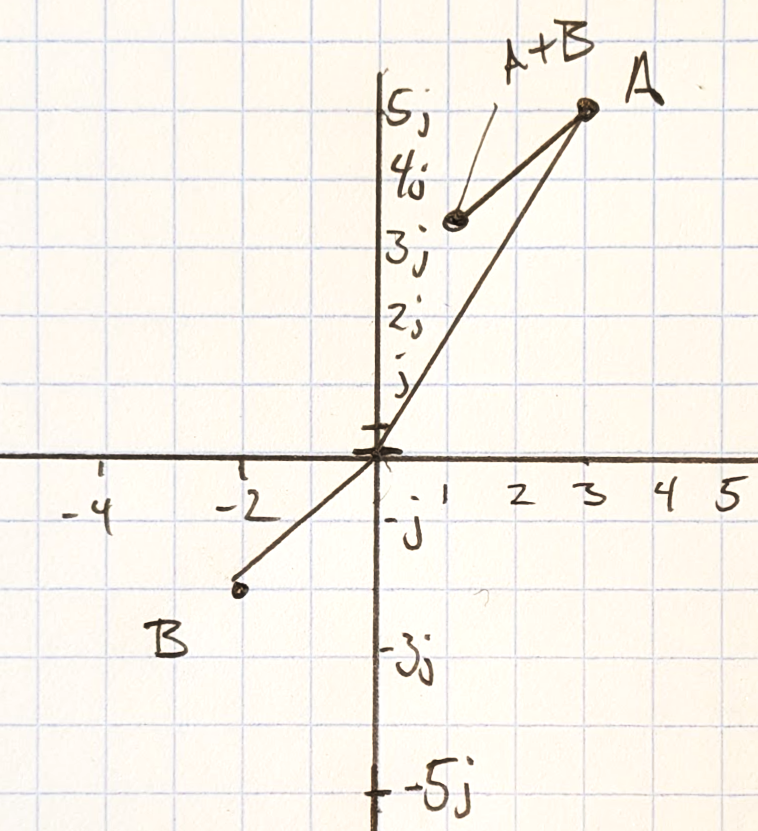 A+B
A
5j
4j
3j
2j
j
-4 -2 1 2 3 4 5
-j
B
-3j
-5j